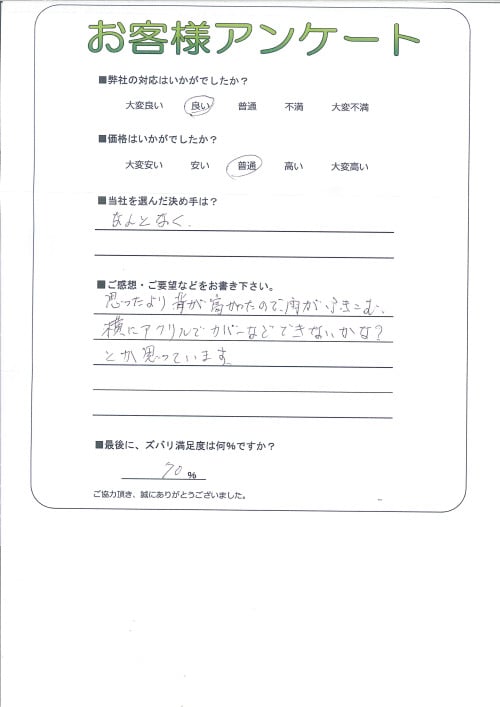 お客様アンケート
■弊社の対応はいかがでしたか？
大変良い 良い 普通 不満 大変不満
■価格はいかがでしたか？
大変安い 安い 普通 高い 大変高い
■当社を選んだ決め手は？
なんとなく.
■ご感想・ご要望などをお書き下さい。
思ったより背が高かったので、雨がふきこむ、
横にアクリルでカバーなどできないかな？
とか思っています
■最後に、ズバリ満足度は何％ですか？
70 ％
ご協力頂き、誠にありがとうございました。